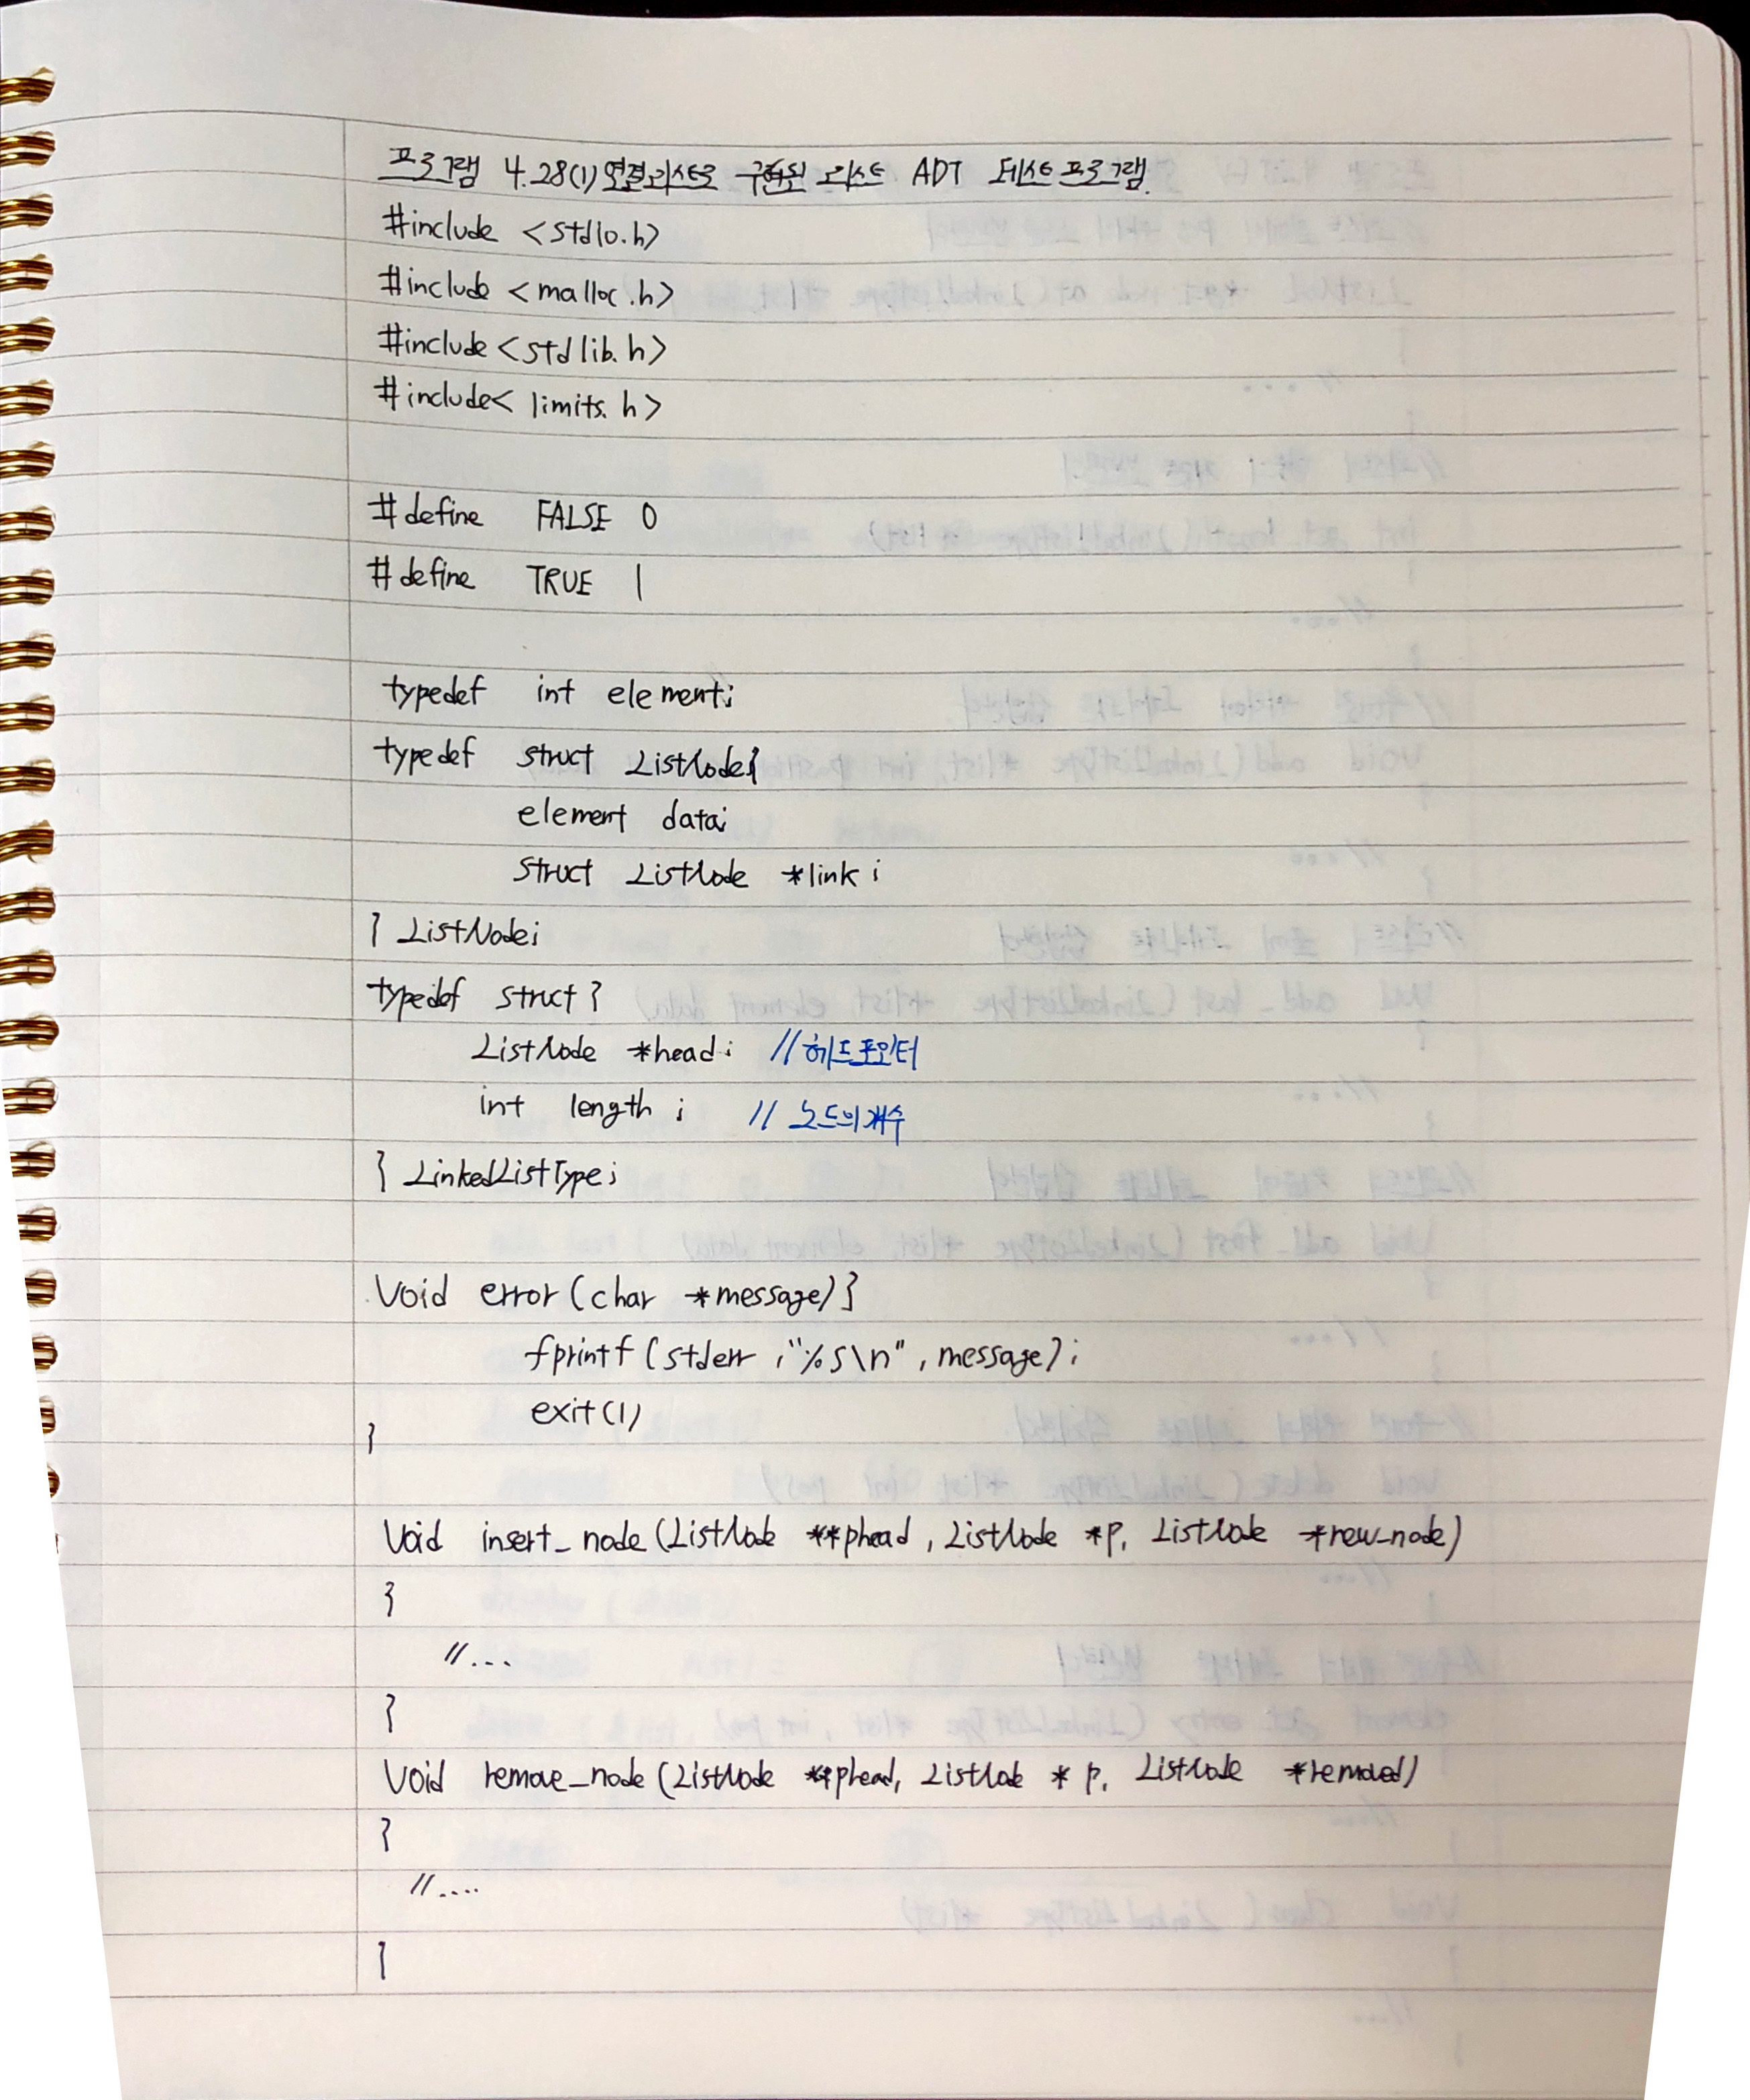 프로그램 4.28(1) 연결리스트로 구현된 리스트 ADT 테스트 프로그램
#include <stdio.h>
#include <malloc.h>
#include<stdlib.h>
#include< limits.h>
#define FALSE 0
#define TRUE 1
typedef int element;
typedef struct ListNode{
element data;
struct ListNode *link;
} ListNode;
typedef struct {
ListNode *head; //헤드포인터
int length; // 노드의개수
} LinkedListType;
Void error(char *message){
fprintf(stderr,"%s\n", message);
exit(1)
}
Void insert_node(ListNode **phead, ListNode *p, ListNode *new_node)
{
//...
}
Void remove_node(ListNode **phead, ListNode * p, ListNode *removed)
{
//....
}